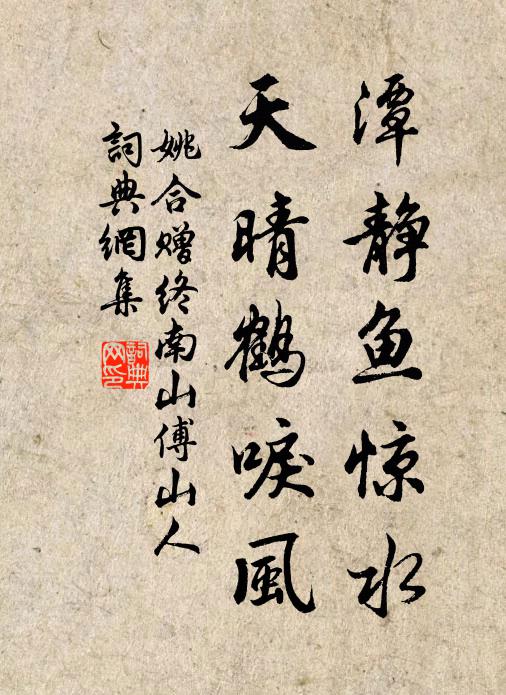 潭静鱼惊水
天晴鶴唳風
姚合赠终南山傅山人
詞典網集
詞典
网印